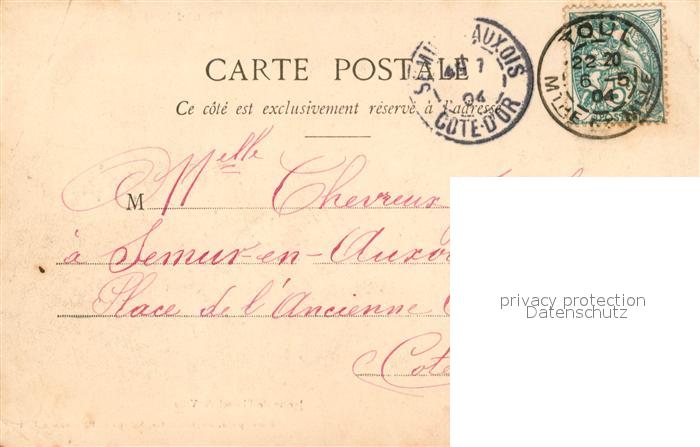 CARTE POSTALE
Ce côté est exclusivement réservé à l'adresse
SEMUR AUXOIS
1
04
COTE-D'OR
TOUL
22 20
6 -5
04
5
POSTES
M Melle Chevreux
à Semur-en-Auxo
Place de l'Ancienne
Cote
privacy protection
Datenschutz